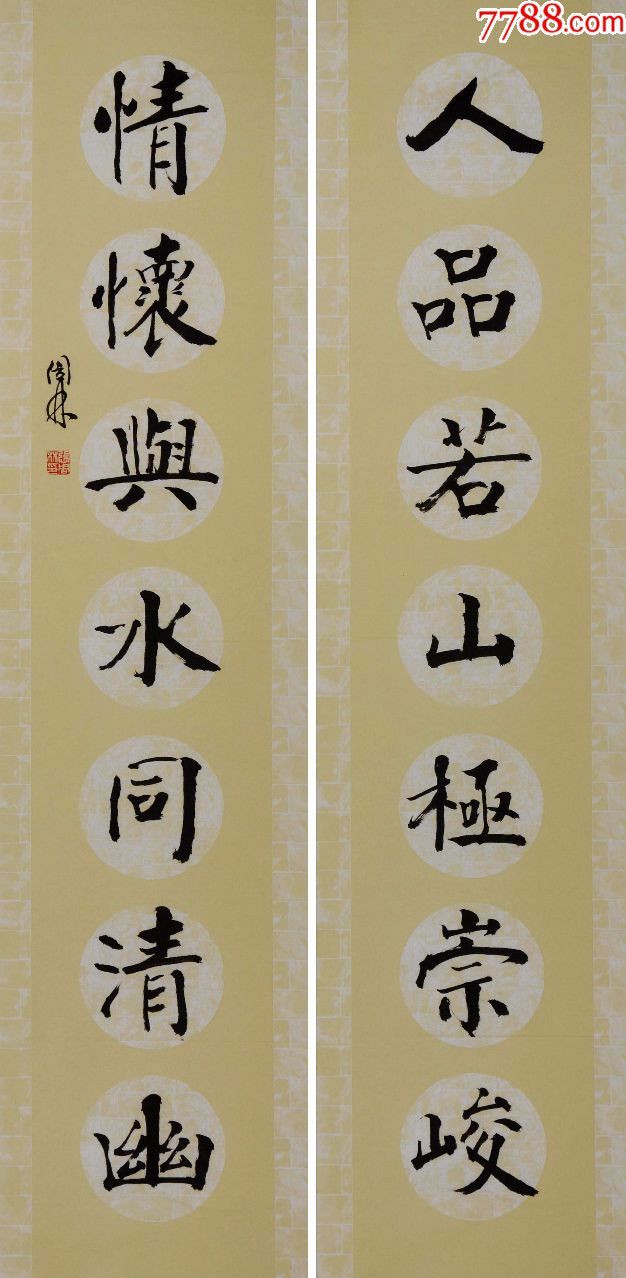 7788.com
人品若山極崇峻
情懷與水同清幽
周林